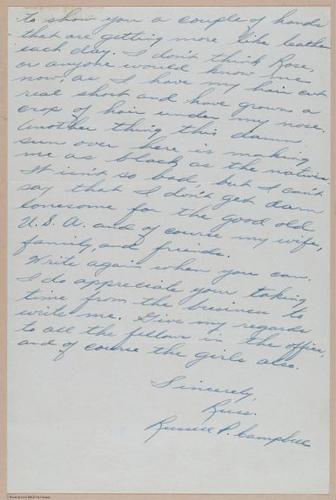 to show you a couple of hands
that are getting more like leather
each day. I don't think Rose,
or anyone would know me
now, as I have my hair cut
real short and have grown a
crop of hair under my nose.
Another thing this damn
sun over here is making
me as black as the natives
It isn't so bad but I can't
say that I don't get darn
lonesome for the good old
U.S.A. and of course my wife,
family, and friends.
Write again when you can.
I do appreciate your taking
time from the business to
write me. Give my regards
to all the fellows in the office,
and of course the girls also.
Sincerely,
Russ.
Russell P. Campbell